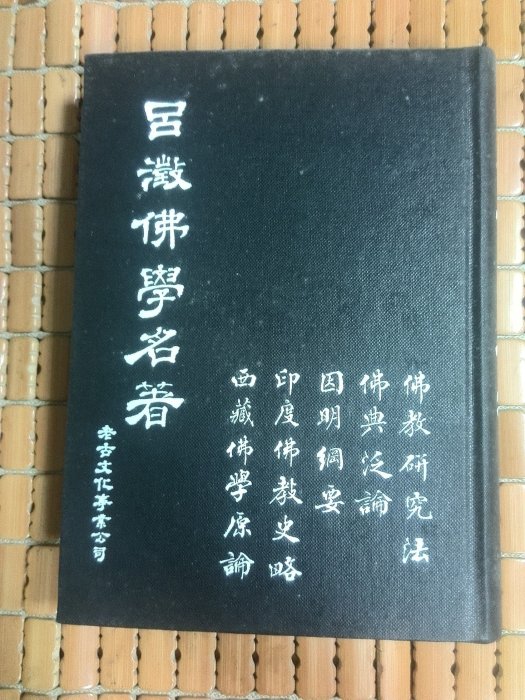 佛教研究法
佛典泛論
因明綱要
印度佛教史略
西藏佛學原論
呂澂佛學名著
老古文化事業公司